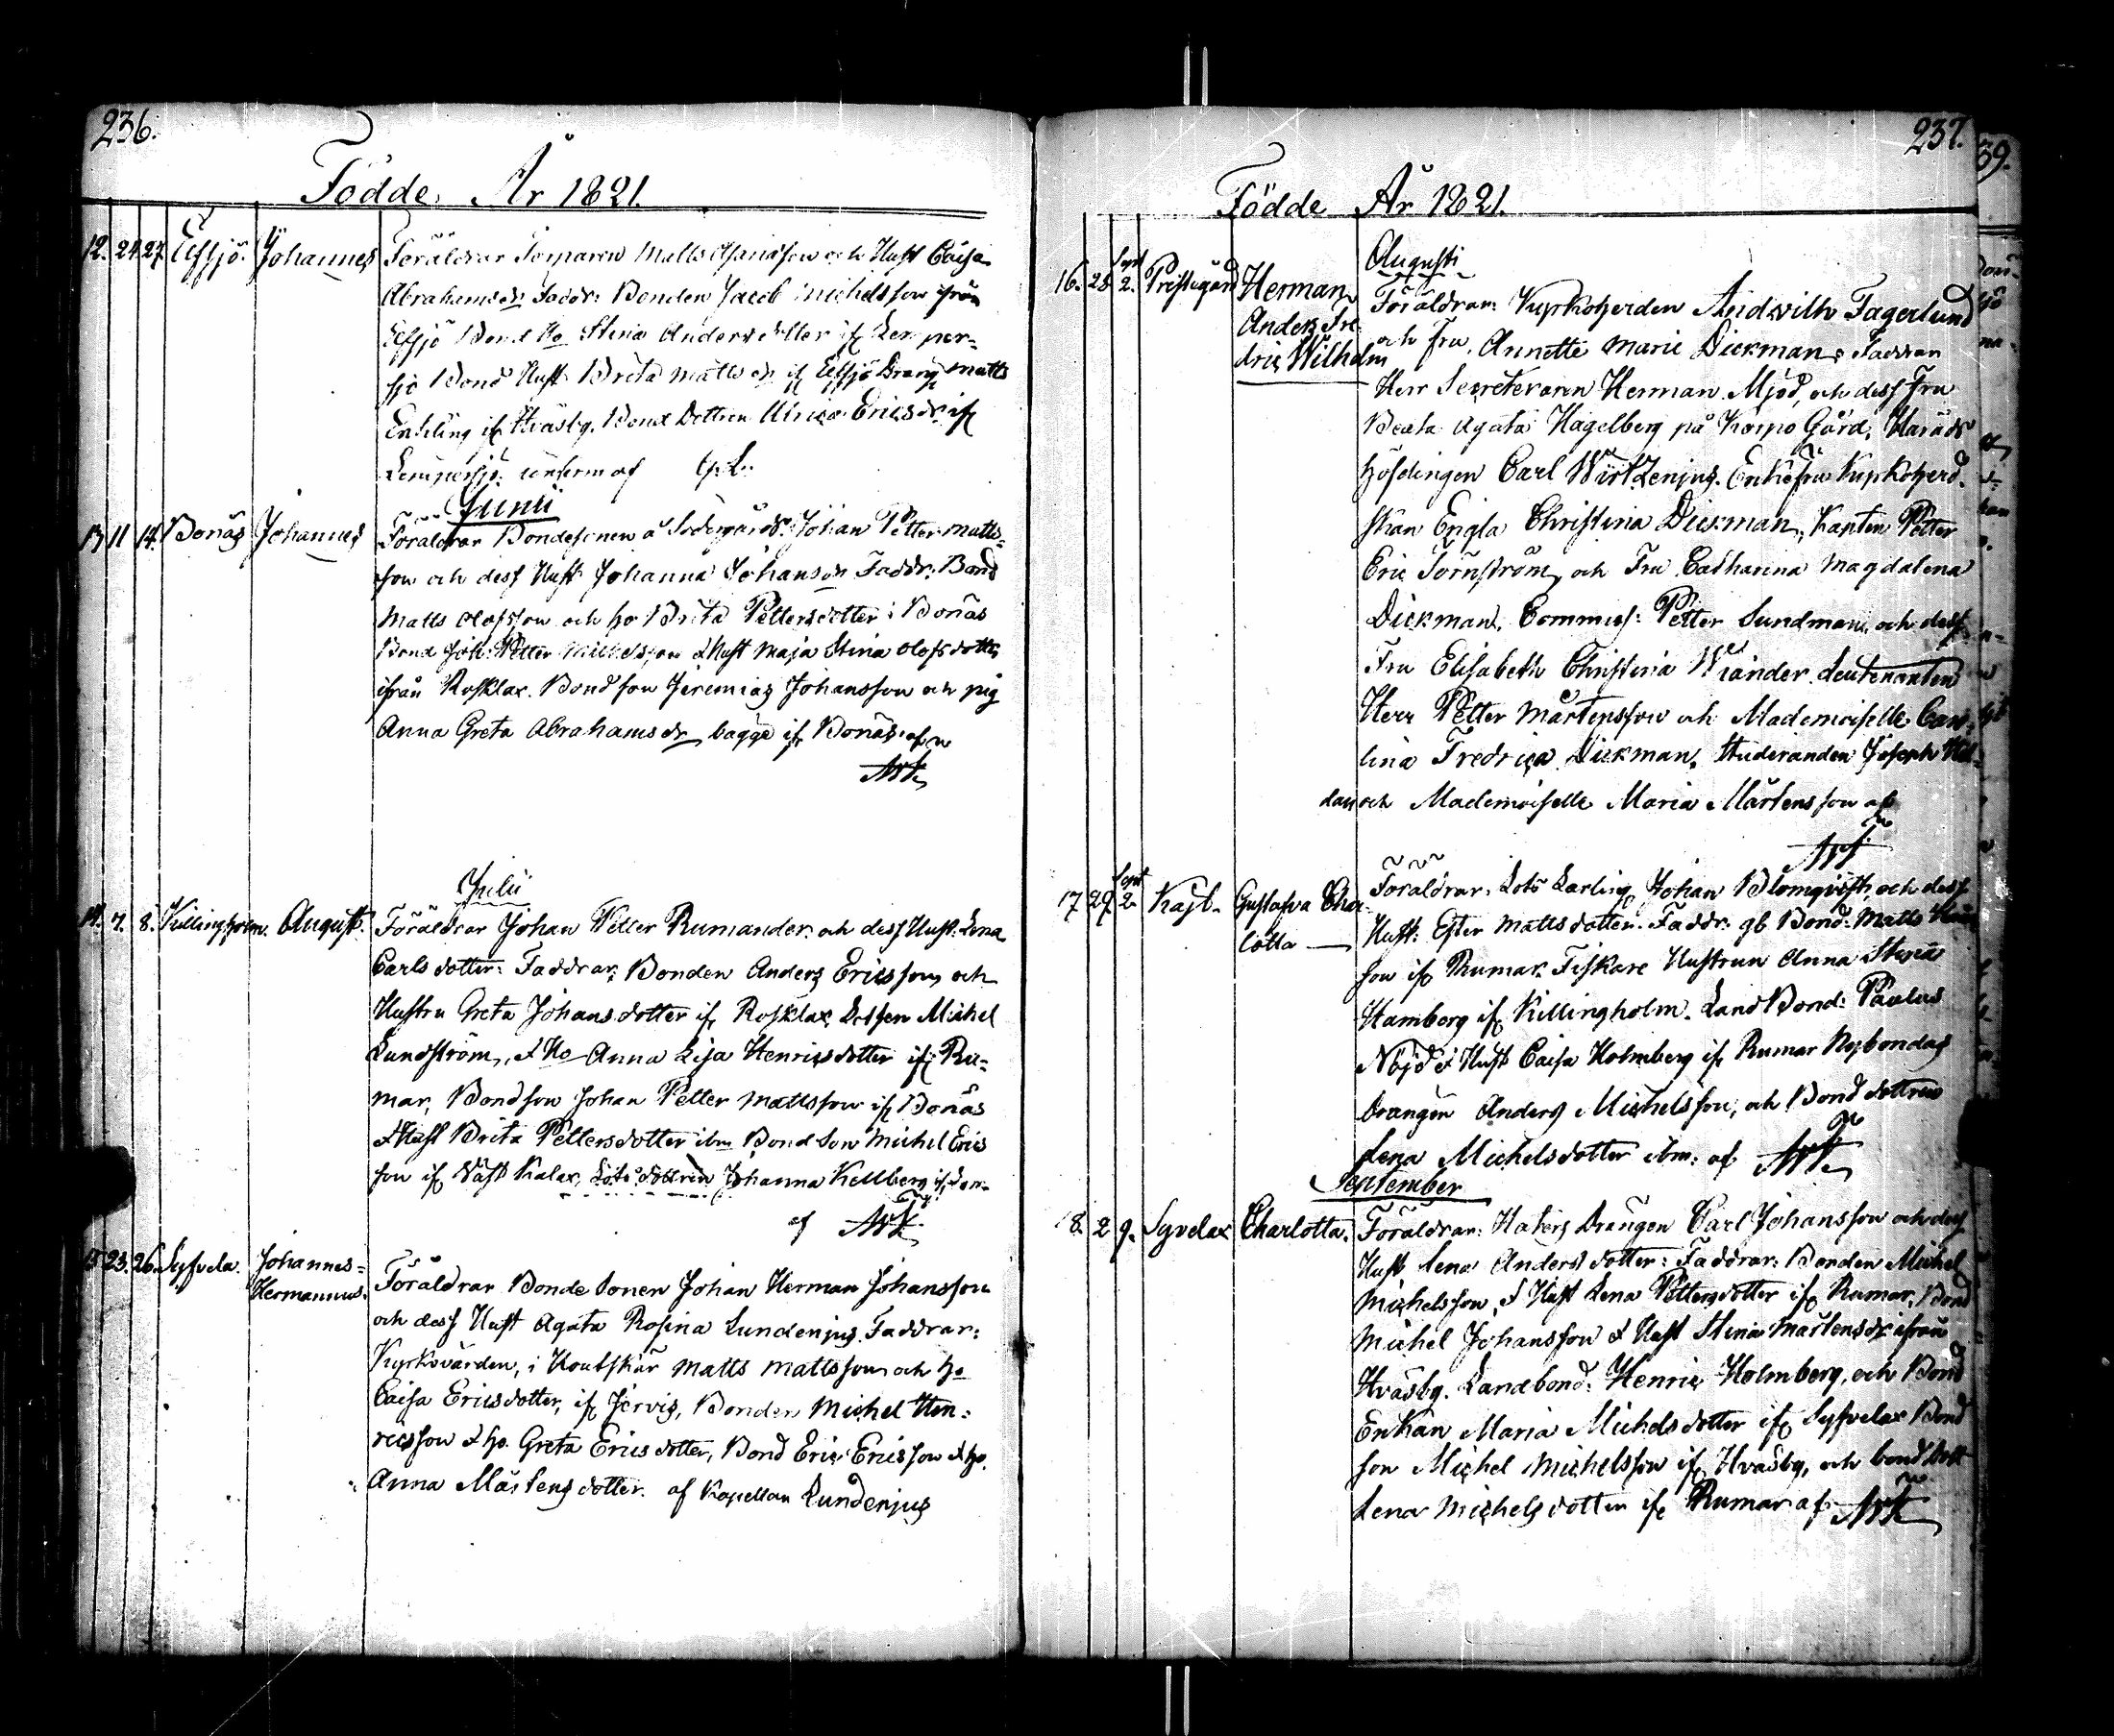 236.
Födde År 1821.
12. 24 27. Elfsjö. Johannes Föräldrar Matts och Hust Caisa
Abrahamsdr Faddr: Bonden Jacob Michelsson från
Elfsjö Bond Ho Stina Andersdotter if Lemper-
sjö Bond Hust Brita Mattsdr if Elfsjö Dräng Matts
Enkling if Hväsby. Bond Dottren Ulrica Ericsdr if
Lempersjö. af
Junii
13 11 14. Bonäs Johannes Föräldrar Bondesonen å Södergårds Johan Petter Matts-
son och dess Hust Johanna Johansdr Faddr. Bond
Matts Olofsson och ho Brita Pettersdotter i Bonäs
Bond Joh: Petter Michelsson & Hust Maja Stina Olofsdotter
ifrån Rosklax. Bondson Jeremias Johansson och pig
Anna Greta Abrahamsdr bagge if Bonäs. af
Julii
14. 7. 8. Killingholm. August. Föräldrar Johan Petter Rumander och dess Hust. Lena
Carlsdotter: Faddrar, Bonden Anders Ericsson, och
Hustru Greta Johansdotter if Rosklax Lotsen Michel
Lundström, & Ho Anna Lisa Henricsdotter if Ru-
mar, Bondson Johan Petter Mattsson if Bonäs
& Hust Brita Pettersdotter ibm Bondson Michel Erics
son if Väst Kalax, Lots dottren Johanna Kellberg
af
15 23. 26. Syfvela. Johannes- Föräldrar Bonde Sonen Johan Herman Johansson
Hermannus.
och dess Hust Agata Rosina Lundenius. Faddrar:
Kyrkovärden, i Houtskär Matts Mattsson och ho
Caisa Ericsdotter, if Jervis, Bonden Michel Hen-
ricsson & ho. Greta Ericsdotter, Bond Eric Ericsson & ho.
Anna Mårtensdotter. af Kapellan Lundenius
237.
Födde År 1821.
Augusti
16. 28 Sept 2. Prästgård Herman Föräldrar: Kyrkoherden And. Wilh Fagerlund
Anders Fre
dric Wilhelm
och Fru, Annette Marie Dickman, Faddrar
Herr Secreteraren Herman Mjöd, och dess Fru
Beata Agata Hagelberg på Korpo Gård, Härads
Höfdingen Carl Wirtzenius. Enkefru Kyrkoherd.
skan Engla Christina Dickman, Kapten Petter
Eric Törnström, och Fru Catharina Magdalena
Dickman, Commiss: Petter Sundman, och dess
Fru Elisabeth Christina Wiander Leutenanten
Herr Petter Mårtensson och Mademoiselle Caro-
lina Fredrica Dickman, Studeranden Joseph
dan och Mademoiselle Maria Mårtensson af
17 29 Sept 2. Kajt- Gustafva Char Föräldrar, Lots Lärling Johan Blomqvist, och dess
lotta
Hust: Ester Mattsdotter. Faddr: gb Bond: Matts
son if Rumar. Fiskare Hustrun Anna Stina
Hamberg if Killingholm. Land Bond: Paulus
Nöjd & Hust Caisa Holmberg if Rumar Nybondas
Drängen Anders Michelsson, och Bonddottren
Lena Michelsdotter ibm: af
September
18. 2 9. Syvelax Charlotta. Föräldrar: Drängen Carl Johansson och dess
Hust Lena Andersdotter: Faddrar: Bonden Michel
Michelsson, & Hust Lena Pettersdotter if Rumar, Bond
Michel Johansson & Hust Stina Mårtensdr ifrån
Hväsby. Landbond: Henric Holmberg, och Bond
Enkan Maria Michelsdotter if Syfvelax Bond
son Michel Michelsson if Hväsby, och bond dott
Lena Michelsdotter if Rumar af
39.